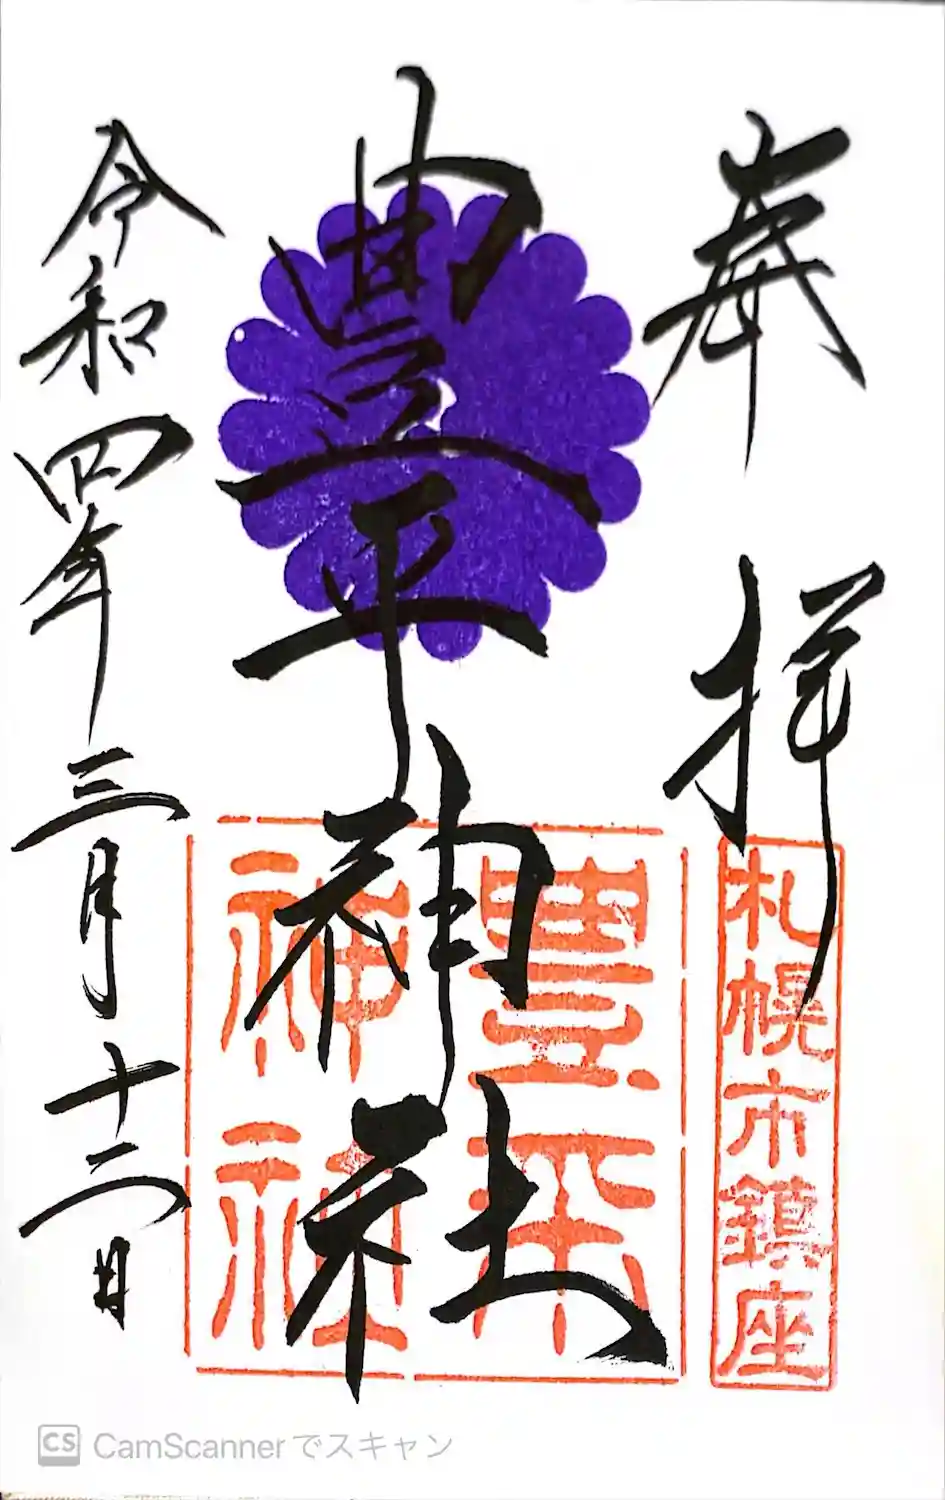 奉拝
札幌市鎮座
豊平神社
豊平
神社
令和四年三月十二日
CS CamScannerでスキャン